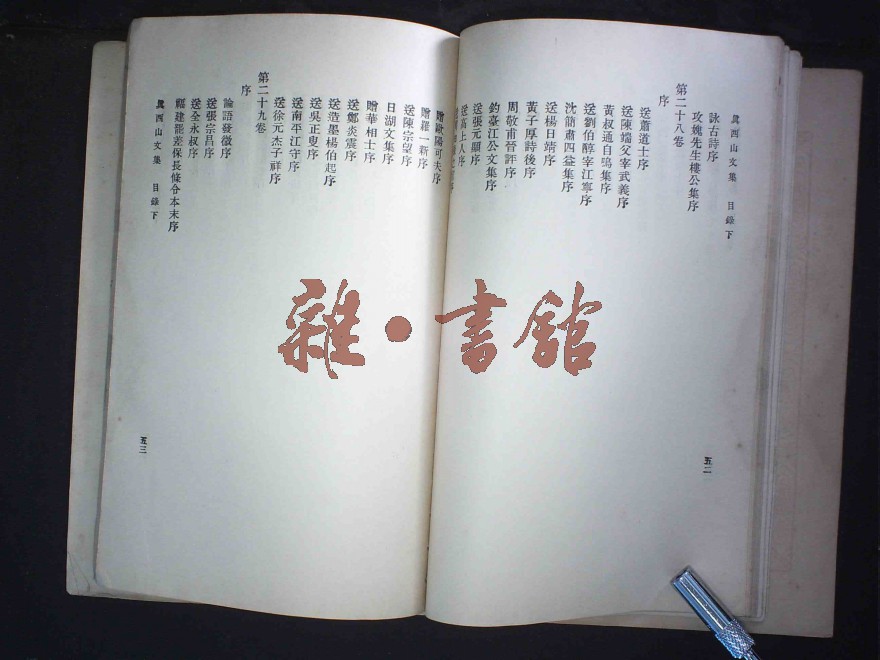 真西山文集 目錄下
詠古詩序
攻媿先生樓公集序
第二十八卷
序
送蕭道士序
送陳端父宰武義序
黃叔通自鳴集序
送劉伯醇宰江寧序
沈簡肅四益集序
送楊日靖序
黃子厚詩後序
周敬甫晉評序
釣臺江公文集序
送張元顯序
送高上人序
五二
贈歐陽可夫序
贈羅一新序
送陳宗望序
日湖文集序
贈華相士序
送鄭炎震序
送造墨楊伯起序
送吳正叟序
送南平江守序
送徐元杰子祥序
第二十九卷
序
論語發微序
送張宗昌序
送全永叔序
福建罷差保長條令本末序
真西山文集 目錄下
五三
雜·書館